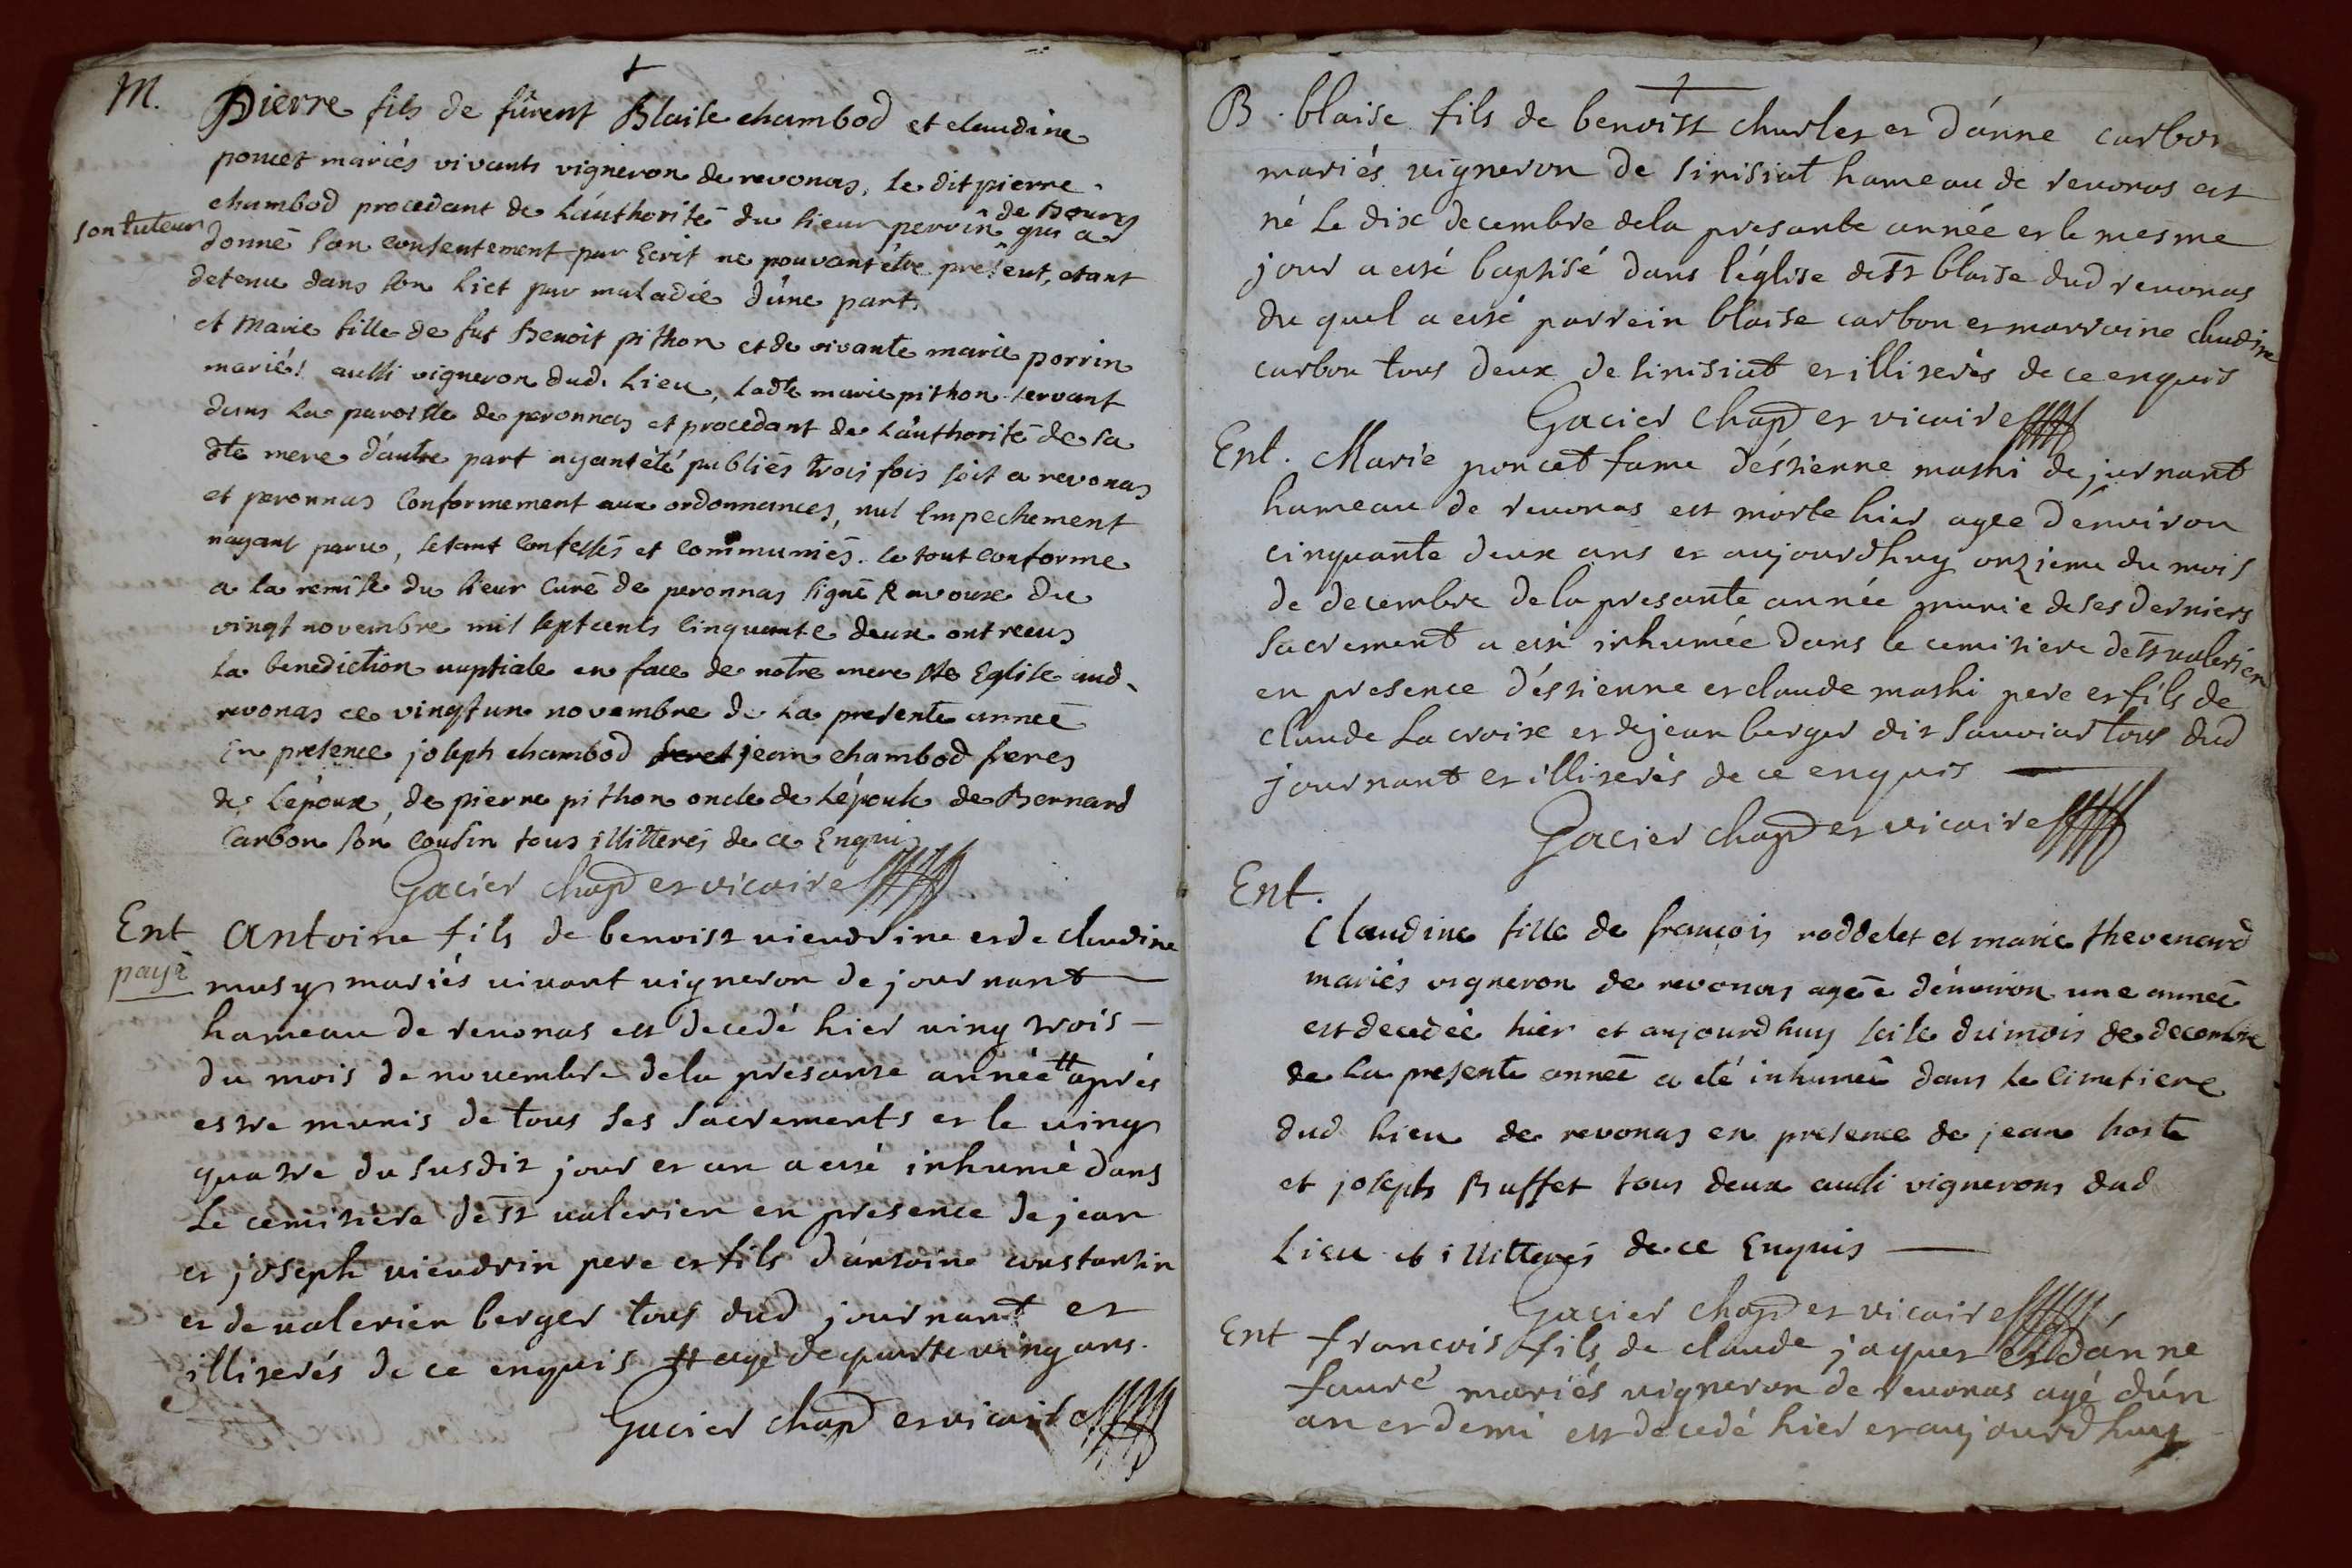 M. Pierre fils de fûrent Blaise chambod et claudine
poncet mariés vivants vigneron de revonas, le dit pierre
chambod procedant de láuthorité du sieur perrin de Bourg qui a
son tuteur
donné son consentement par Ecrit ne pouvant être présent, etant
detenu dans son lict par maladie d'úne part.
et Marie fille de fut Benoit pithon et de vivante marie porrin
mariés aussi vigneron dud. Lieu, ladte marie pithon servant
dans la paroisse de peronnas et procedant de láuthorité de sa
dte mere d'áutre part ayant été publiés trois fois soit a revonas
et peronnas Conformement aux ordonnances, nul Empechement
nayant paru, setant Confessés et Communiés. le tout conforme
a la remise du sieur Curé de peronnas signé Ravoux du
vingt novembre mil septcents Cinquante deux ont recus
la benediction nuptiale en face de notre mere Ste Eglise aud.
revonas ce vingt un novembre de La presente année
En presence joseph chambod jean chambod freres
de Lépoux, de pierre pithon oncle de Lépouse de Bernard
Carbon son Cousin tous illitterés de ce Enquis
Gacier chapd et vicaire
Ent Antoine fils de benoist vieudrine et de claudine
payé
musy mariés vivant vigneron de journant
hameau de revonas est decedé hier ving trois
du mois de novembre dela presante année # aprés
estre munis de tous ses sacrements et le ving
quatre du susdit jour et an a eté inhumé dans
Le cemitiere de st valerien en presence de jean
et joseph vieudrin pere et fils d'ántoine constantin
et de valerien berger tous dud journant et
illiterés de ce enquis # agé de quatte ving ans.
Gacier chapd et vicaire
B. blaise fils de benoist charles et d'ánne carbon
mariés vigneron de sinisiat hameau de revonas est
né Le dix decembre dela presante année et le mesme
jour a esté baptisé dans léglise de st blaise dud revonas
du quel a eté parrein blaise carbon et marraine claudine
carbon tous deux de sinisiat et illiterés de ce enquis
Gacier chapd et vicaire
Ent. Marie poncet fame d'éstienne mathi de jurnant
hameau de revonas est morte hier agee d'énviron
cinquante deux ans et aujourdhuy onzieme du mois
de decembre dela presante année munie de ses derniers
Sacrement a eté inhumée dans le cemitiere de st valerien
en presence d'éstienne et claude mathi pere et fils de
claude La croix et de jean berger dit Sauviat tous dud
journant et illiterés de ce enquis
Gacier chapd et vicaire
Ent.
Claudine fille de francois roddelet et marie thevenard
mariés vigneron de revonas agée d'énviron une année
est decedée hier et aujourdhuy seise du mois de decembre
de La presente année a eté inhumée dans le Cimetiere
dud lieu de revonas en presence de jean hoste
et joseph Buffet tous deux aussi vignerons dud
Lieu et illitterés de ce Enquis
Gacier chapd et vicaire
Ent francois fils de claude jaquet et d'ánne
fauré mariés vigneron de revonas agé d'ún
an et demi est decedé hier et aujourdhuy